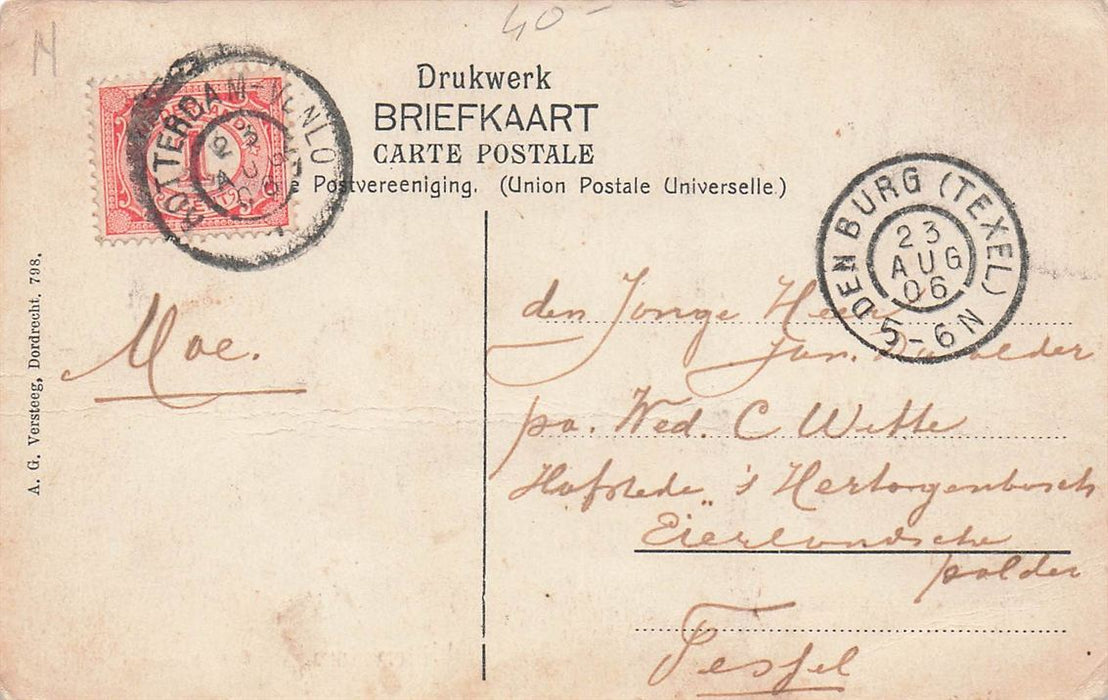 M
40-
Drukwerk
BRIEFKAART
CARTE POSTALE
Postvereeniging. (Union Postale Universelle.)
ROTTERDAM-VENLO
DEN BURG (TEXEL)
23
AUG
06
5-6N
A. G. Versteeg, Dordrecht. 798.
Moe.
den Jonge Heer
Jan.
pa. Wed. C Witte
Hofstede 's Hertogenbosch
Eierlandsche
polder
Tessel